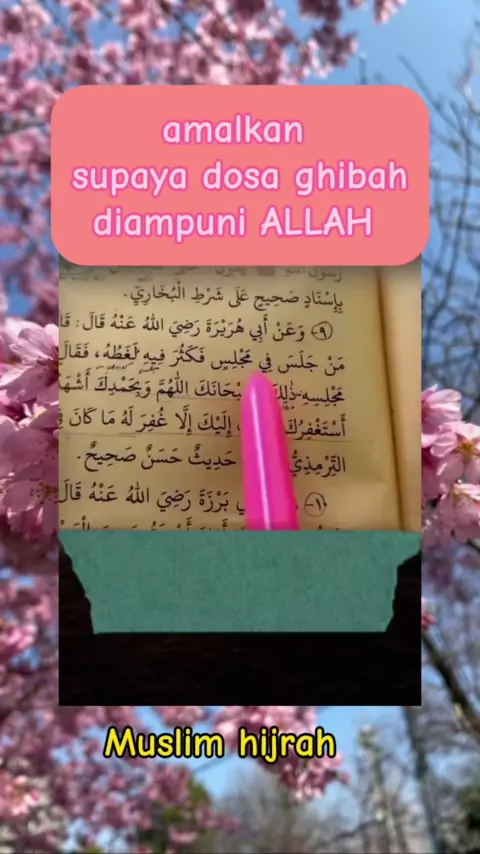 amalkan
supaya dosa ghibah
diampuni ALLAH
بِإِسْنَادٍ صَحِيحٍ عَلَى شَرْطِ الْبُخَارِيِّ.
(٩) وَعَنْ أَبِي هُرَيْرَةَ رَضِيَ اللهُ عَنْهُ قَالَ: قَا
مَنْ جَلَسَ فِي مَجْلِسٍ فَكَثُرَ فِيهِ لَغَطُهُ، فَقَالَ
مَجْلِسِهِ ذٰلِكَ اللّٰهُمَّ وَبِحَمْدِكَ أَشْهَ
أَسْتَغْفِرُكَ إِلَيْكَ إِلَّا غُفِرَ لَهُ مَا كَانَ فِ
التِّرْمِذِيُّ حَدِيثٌ حَسَنٌ صَحِيحٌ.
بَرْزَةَ رَضِيَ اللهُ عَنْهُ قَالَ
Muslim hijrah